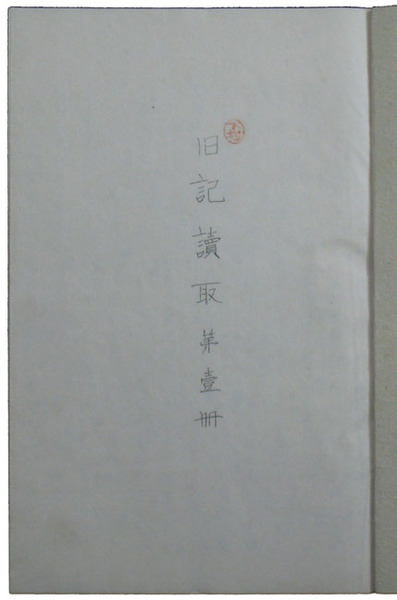 旧記讀取第壹冊